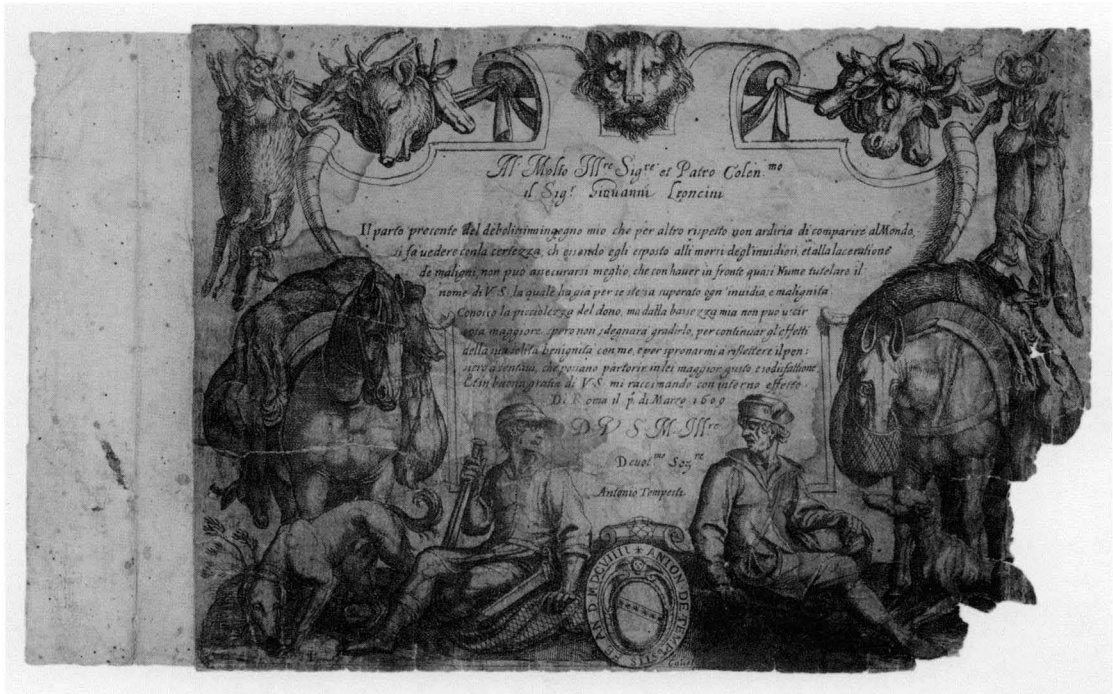 Al Molto Ill.re Sig.re et Patro Colen.mo
il Sig.r Giovanni Leoncini
Il parto presente del debolissimo ingegno mio, che per altro rispetto non ardiria di comparire al Mondo,
si fa vedere con la certezza, ch essendo egli esposto alli morsi degl'invidiosi, et alla laceratione
de maligni, non può assecurarsi meglio, che con haver in fronte quasi Nume tutelare il
nome di V.S. la quale ha già per se stessa superato ogn'invidia, e malignita
Conosco la picciolezza del dono, ma dalla bassezza mia non può uscir
cosa maggiore, spero non sdegnarà gradirlo, per continuar gl'effetti
della sua solita benignità con me, e per spronarmi à riflettere il pen:
siero che possano partorir in lei maggior gusto, e sodisfattione
Et in buona gratia di V.S. mi raccomando con interno affetto
Di Roma il p.o di Marzo 1609
D V S M Ill.re
Devot.mo Ser.re
Antonio Tempesti
ANTON DE TEMPESTIS AN D MDCVIIII